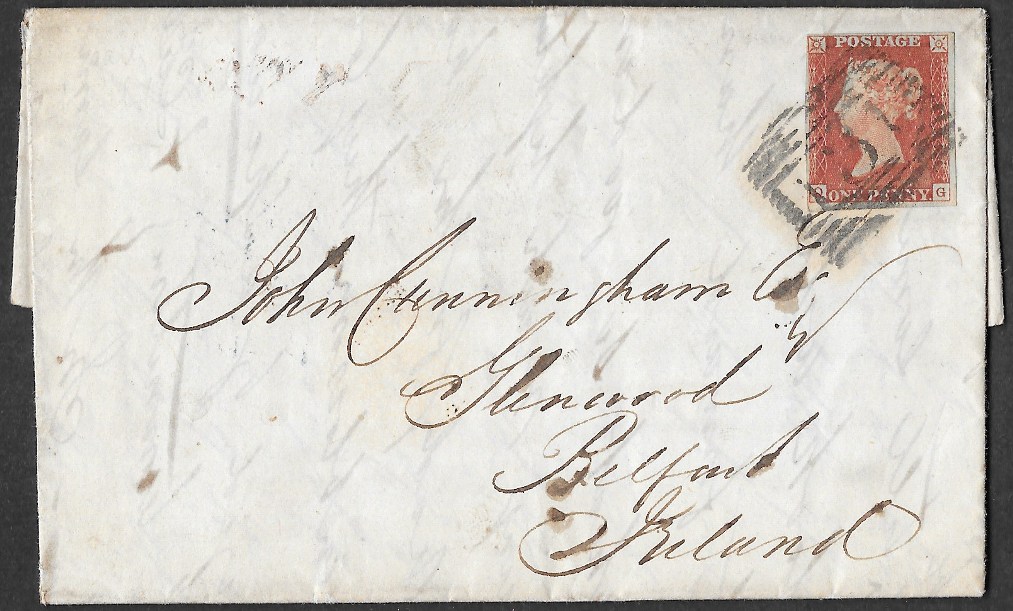 POSTAGE
ONE PENNY.
G
John Cunningham Esqr
Glenwood
Belfast
Ireland